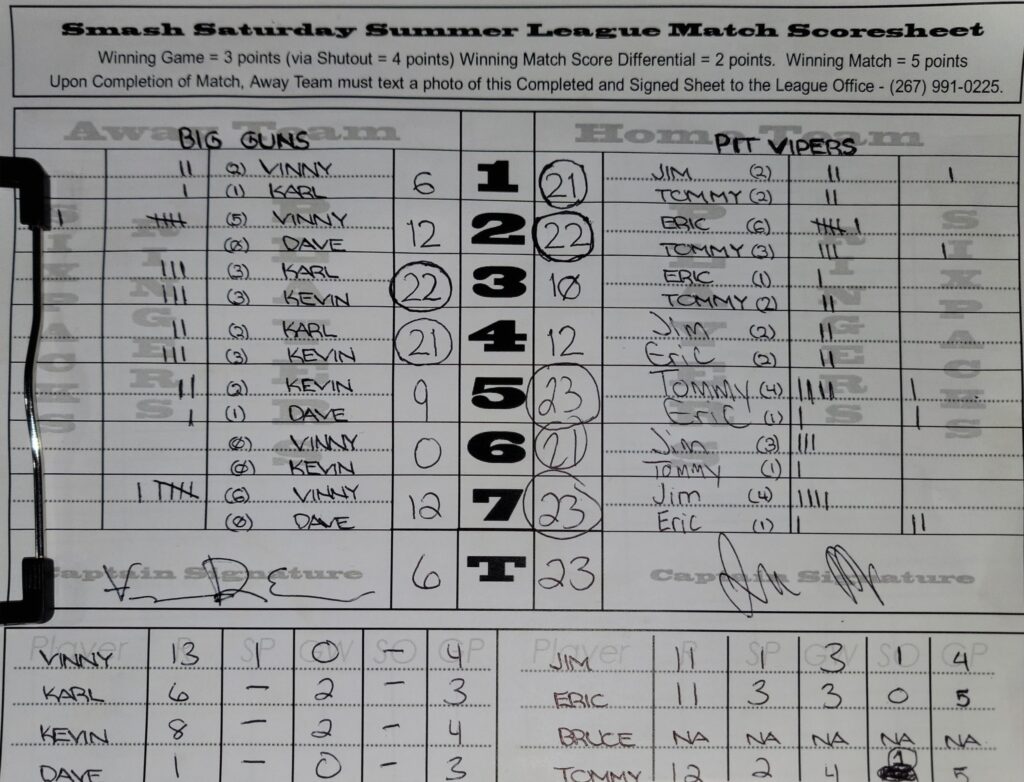 Smash Saturday Summer League Match Scoresheet
Winning Game = 3 points (via Shutout = 4 points) Winning Match Score Differential = 2 points. Winning Match = 5 points
Upon Completion of Match, Away Team must text a photo of this Completed and Signed Sheet to the League Office - (267) 991-0225.
Away Team Home Team
BIG GUNS PIT VIPERS
SIXPACKS RINGERS PLAYERS PLAYERS RINGERS SIXPACKS
II (2) VINNY 6 1 21 JIM (2) II I
I (1) KARL TOMMY (2) II
I IIIII (5) VINNY 12 2 22 ERIC (6) IIIII I
(0) DAVE TOMMY (3) III I
III (3) KARL 22 3 10 ERIC (1) I
III (3) KEVIN TOMMY (2) II
II (2) KARL 21 4 12 Jim (2) II
III (3) KEVIN Eric (2) II
II (2) KEVIN 9 5 23 TOMMY (4) IIII I
I (1) DAVE ERIC (1) I I
(0) VINNY 0 6 21 Jim (3) III
(0) KEVIN TOMMY (1) I
I IIIII (6) VINNY 12 7 23 Jim (4) IIII
(0) DAVE Eric (1) I II
Captain Signature 6 T 23 Captain Signature
Player R SP GW SO GP Player R SP GW SO GP
VINNY 13 1 0 - 4 JIM 11 1 3 1 4
KARL 6 - 2 - 3 ERIC 11 3 3 0 5
KEVIN 8 - 2 - 4 BRUCE NA NA NA NA NA
DAVE 1 - 0 - 3 TOMMY 12 2 4 1 5